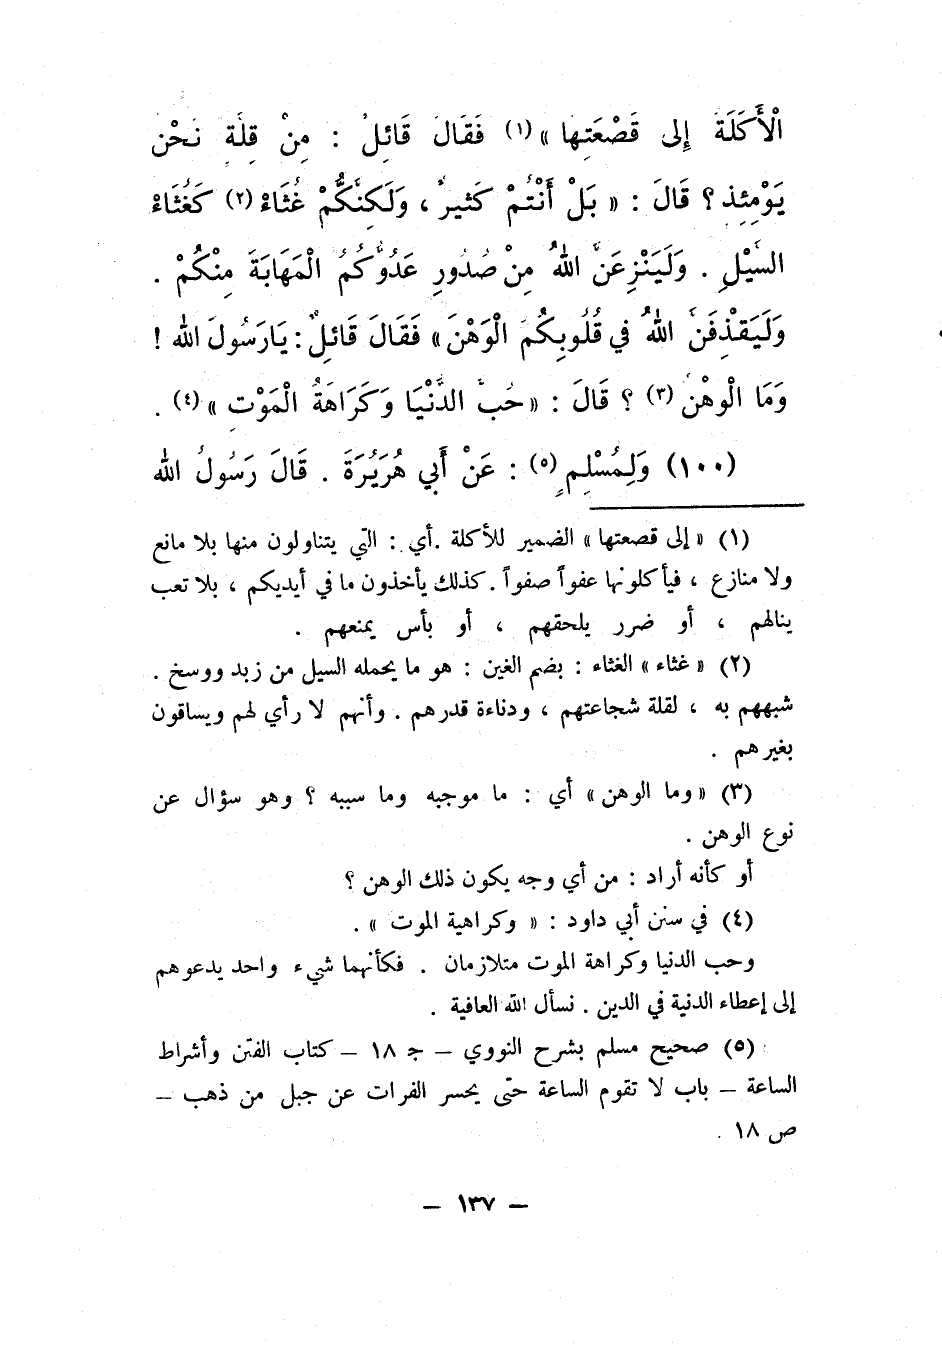 الْأَكَلَةَ إِلى قَصْعَتِها »(١) فَقَالَ قَائِلٌ : مِنْ قِلَّةٍ نَحْن
يَوْمِئِذٍ ؟ قَالَ : « بَلْ أَنْتُمْ كَثيرٌ ، وَلَكِنَّكُمْ غُثَاءٌ(٢) كَغُثَاءْ
السَّيْلِ . وَلَيَنْزِعَنَّ اللهُ مِنْ صُدُورِ عَدُوِّكُمُ الْمَهَابَةَ مِنْكُمْ .
وَلَيَقْذِفَنَّ اللهُ في قُلُوبِكُمَ الْوَهْنَ » فَقَالَ قَائِلٌ : يَارَسُولَ الله !
وَمَا الْوهْنُ(٣) ؟ قَالَ : « حُبُّ الدُّنْيَا وَكَرَاهَةُ الْمَوْتِ »(٤) .
(١٠٠) وَلِمُسْلِمٍ(٥) : عَنْ أَبي هُرَيْرَةَ . قَالَ رَسُولُ الله
(١) « إلى قصعتها » الضمير للأكلة . أي : التي يتناولون منها بلا مانع
ولا منازع ، فيأكلونها عفواً صفواً . كذلك يأخذون ما في أيديكم ، بلا تعب
ينالهم ، أو ضرر يلحقهم ، أو بأس يمنعهم .
(٢) « غثاء » الغثاء : بضم الغين : هو ما يحمله السيل من زبد ووسخ .
شبههم به ، لقلة شجاعتهم ، ودناءة قدرهم . وأنهم لا رأي لهم ويساقون
بغيرهم .
(٣) « وما الوهن » أي : ما موجبه وما سببه ؟ وهو سؤال عن
نوع الوهن .
أو كأنه أراد : من أي وجه يكون ذلك الوهن ؟
(٤) في سنن أبي داود : « وكراهية الموت » .
وحب الدنيا وكراهة الموت متلازمان . فكأنهما شيء واحد يدعوهم
إلى إعطاء الدنية في الدين . نسأل الله العافية .
(٥) صحيح مسلم بشرح النووي – جـ ١٨ – كتاب الفتن وأشراط
الساعة – باب لا تقوم الساعة حتى يحسر الفرات عن جبل من ذهب –
ص ١٨ .
– ١٣٧ –